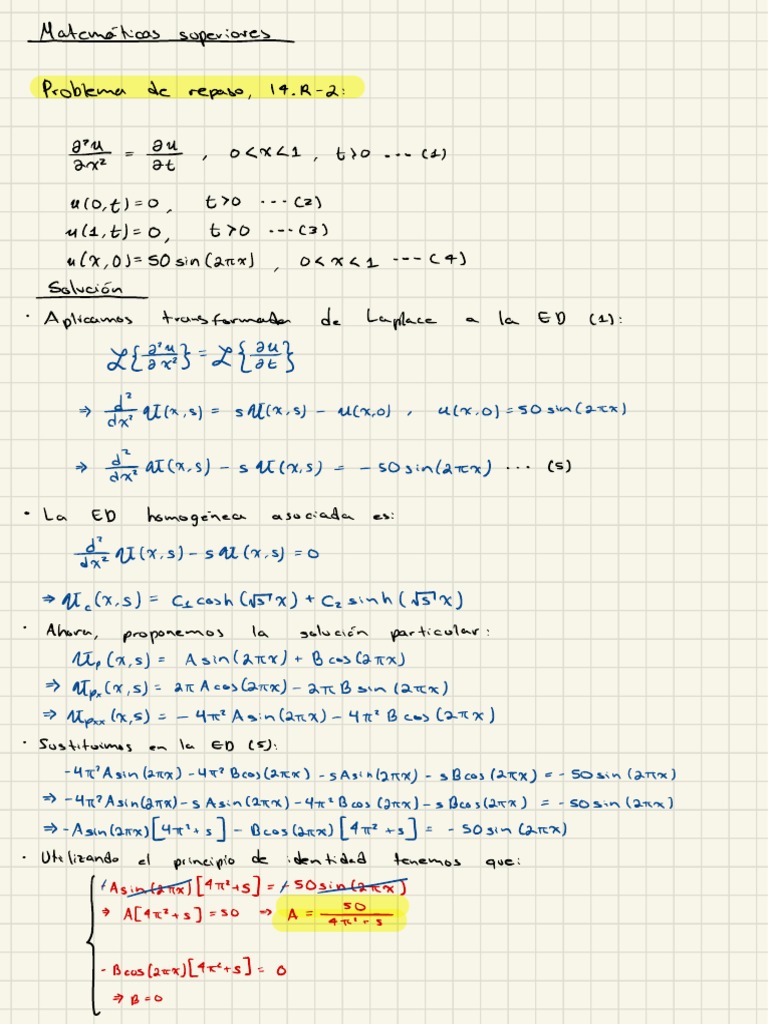 Matemáticas superiores
Problema de repaso, 14.R-2:
∂²u/∂x² = ∂u/∂t , 0<x<1 , t>0 ... (1)
u(0,t)=0, t>0 ... (2)
u(1,t)=0, t>0 ... (3)
u(x,0)=50 sin(2πx) , 0<x<1 ... (4)
Solución
· Aplicamos transformada de Laplace a la ED (1):
ℒ{∂²u/∂x²} = ℒ{∂u/∂t}
⇒ d²/dx² U(x,s) = sU(x,s) - u(x,0) , u(x,0)=50 sin(2πx)
⇒ d²/dx² U(x,s) - sU(x,s) = -50 sin(2πx) ... (5)
· La ED homogénea asociada es:
d²/dx² U(x,s) - sU(x,s) = 0
⇒ U_c(x,s) = C₁ cosh(√s x) + C₂ sinh(√s x)
· Ahora, proponemos la solución particular:
U_p(x,s) = A sin(2πx) + B cos(2πx)
⇒ U_px(x,s) = 2πA cos(2πx) - 2πB sin(2πx)
⇒ U_pxx(x,s) = -4π² A sin(2πx) - 4π² B cos(2πx)
· Sustituimos en la ED (5):
-4π² A sin(2πx) - 4π² B cos(2πx) - sA sin(2πx) - sB cos(2πx) = -50 sin(2πx)
⇒ -4π² A sin(2πx) - sA sin(2πx) - 4π² B cos(2πx) - sB cos(2πx) = -50 sin(2πx)
⇒ -A sin(2πx)[4π²+s] - B cos(2πx)[4π²+s] = -50 sin(2πx)
· Utilizando el principio de identidad tenemos que:
-A sin(2πx)[4π²+s] = -50 sin(2πx)
⇒ A[4π²+s] = 50 ⇒ A = 50/(4π²+s)
-B cos(2πx)[4π²+s] = 0
⇒ B=0